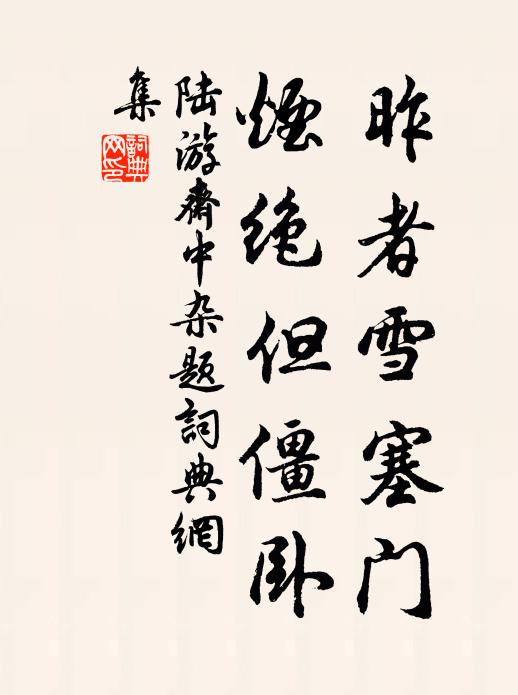 昨者雪塞门
煙绝但僵卧
陆游齋中杂题詞典網
集
詞典網印